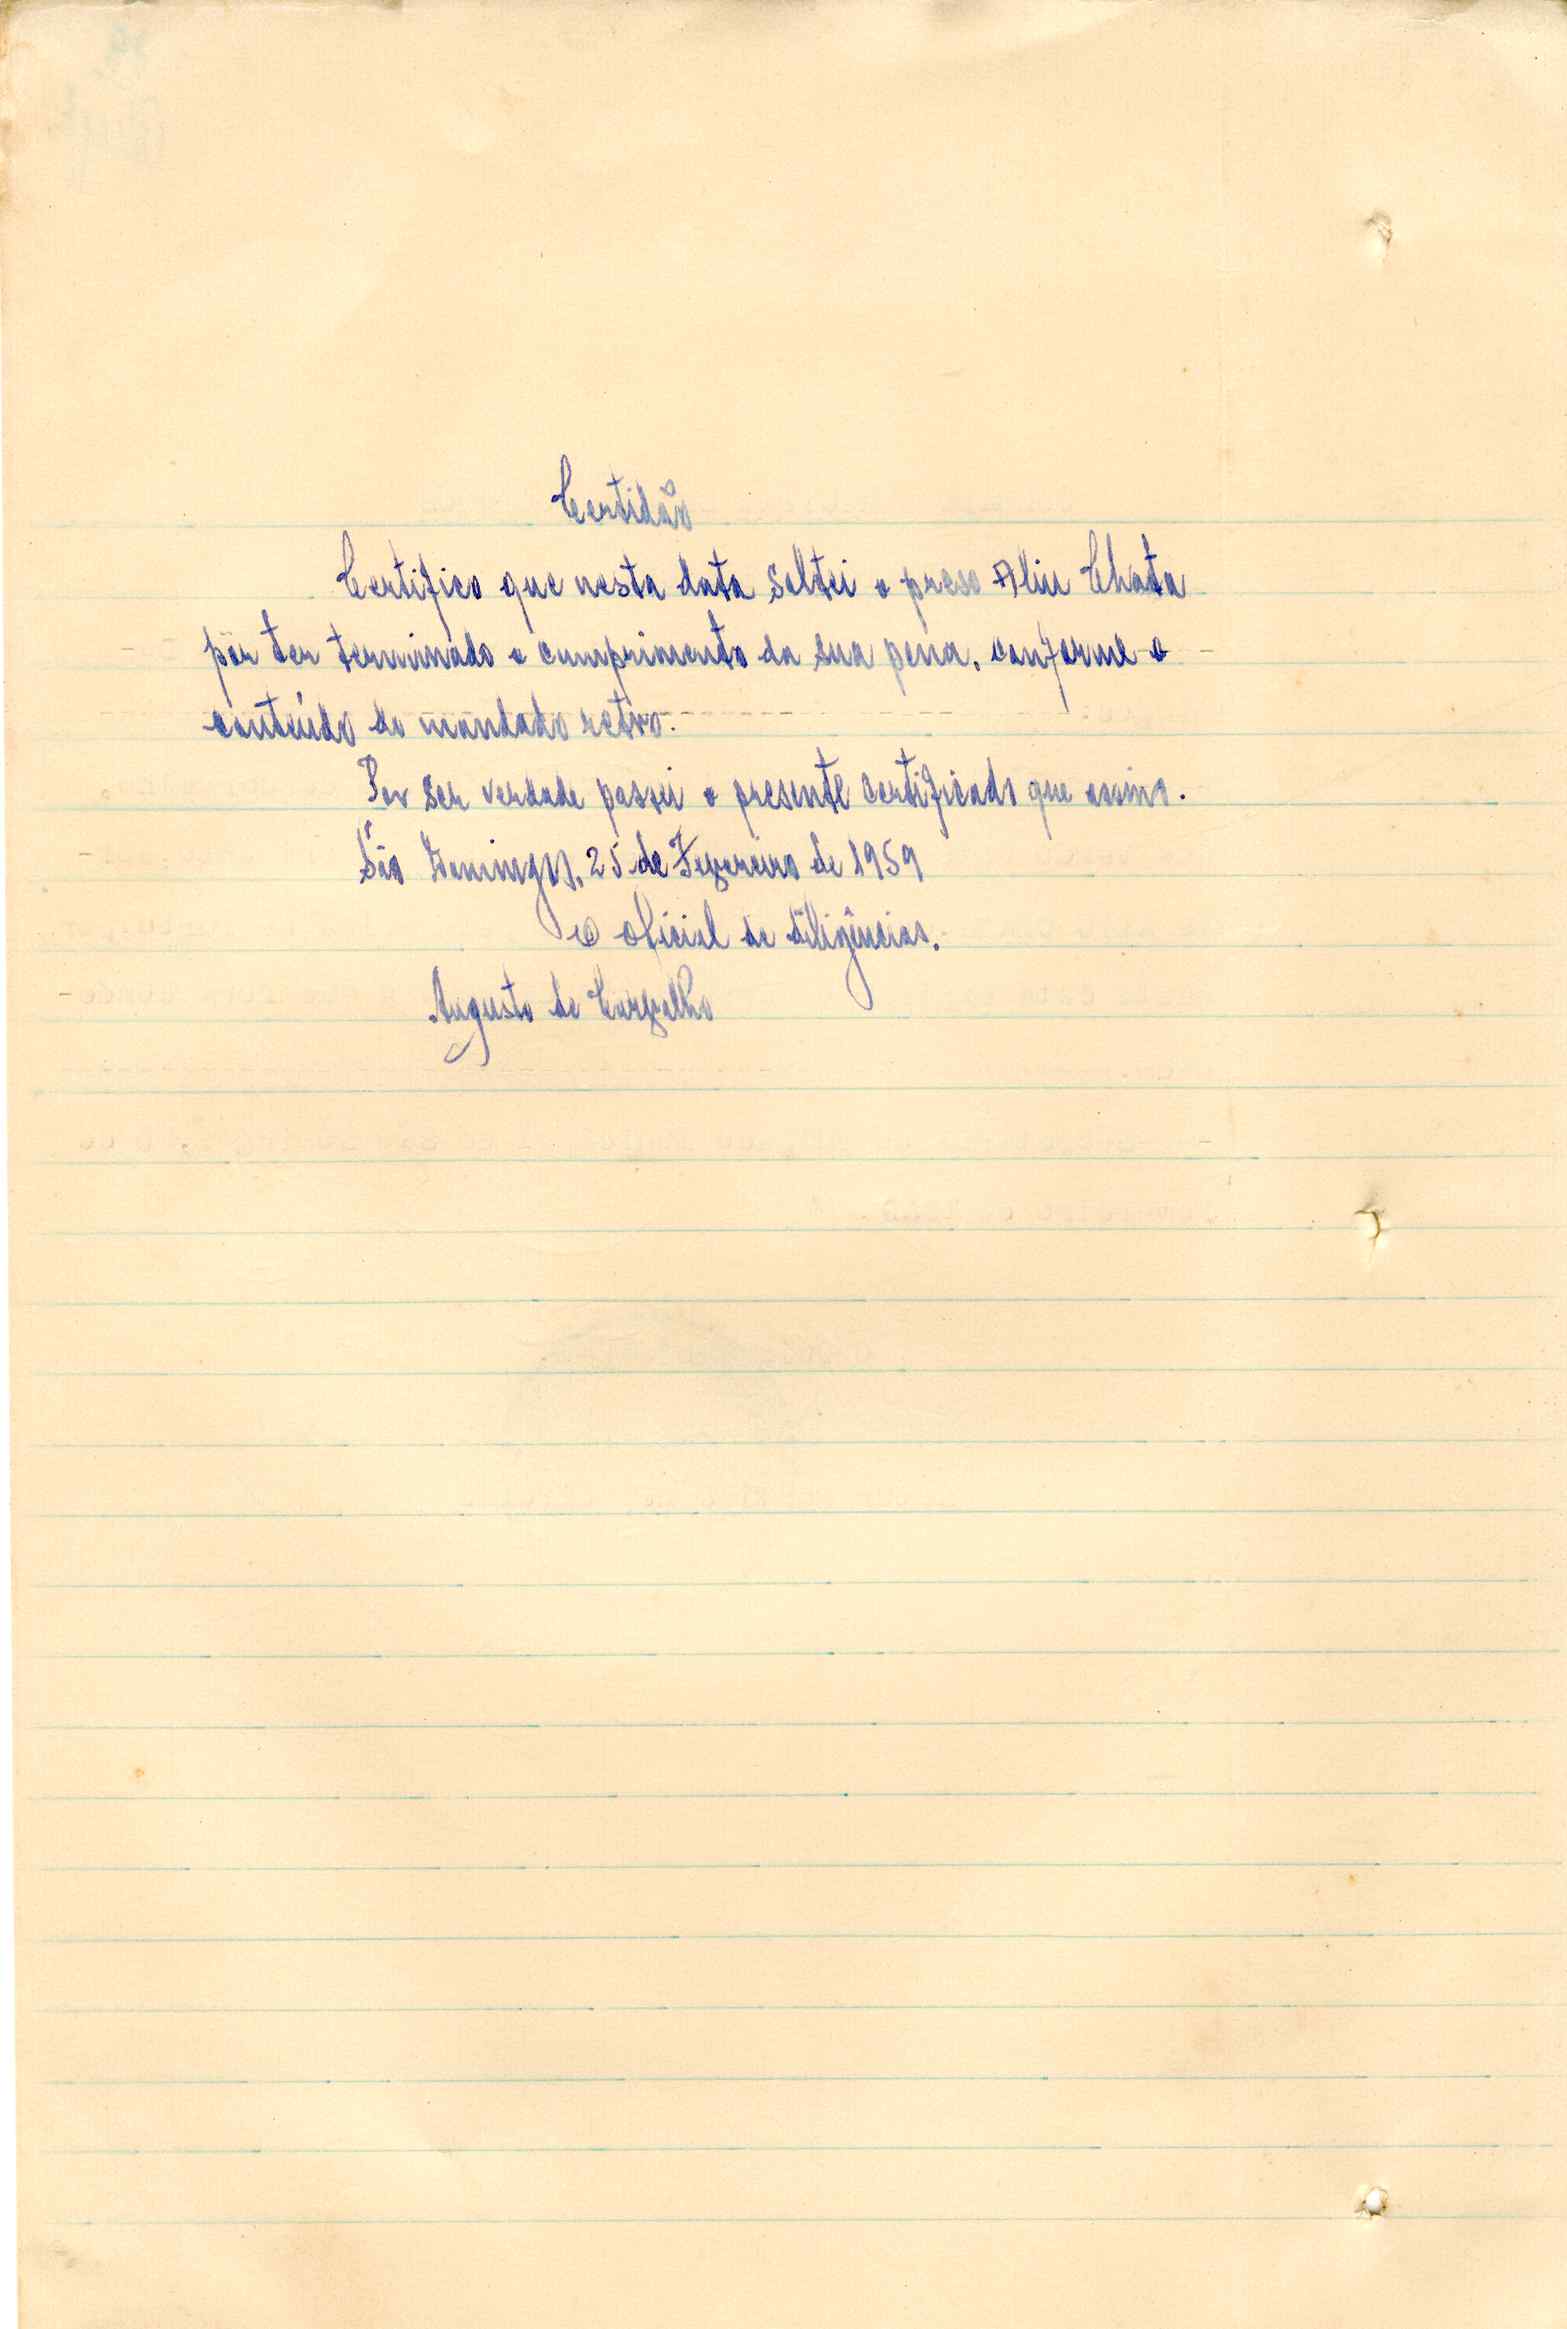 Certidão
Certifico que nesta data soltei o preso Aliu Chata
por ter terminado o cumprimento da sua pena, conforme o
conteúdo do mandado retro.
Por ser verdade passei o presente certificado que assino.
São Domingos, 25 de Fevereiro de 1959
O oficial de diligências.
Augusto de Carvalho